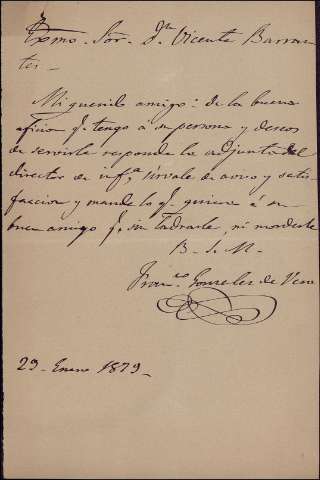 Exmo. Sor. Dn. Vicente Barran-
tes.
Mi querido amigo: de la buena
aficion q. tengo á su persona y deseos
de servirla responde la adjunta del
director de
sirvale de aviso y satis-
faccion y mande lo q. quiera á su
buen amigo q. sin ladrarle, ni morderle
B. S. M.
Franco. Gonzalez de Vera
29 - Enero 1879 -